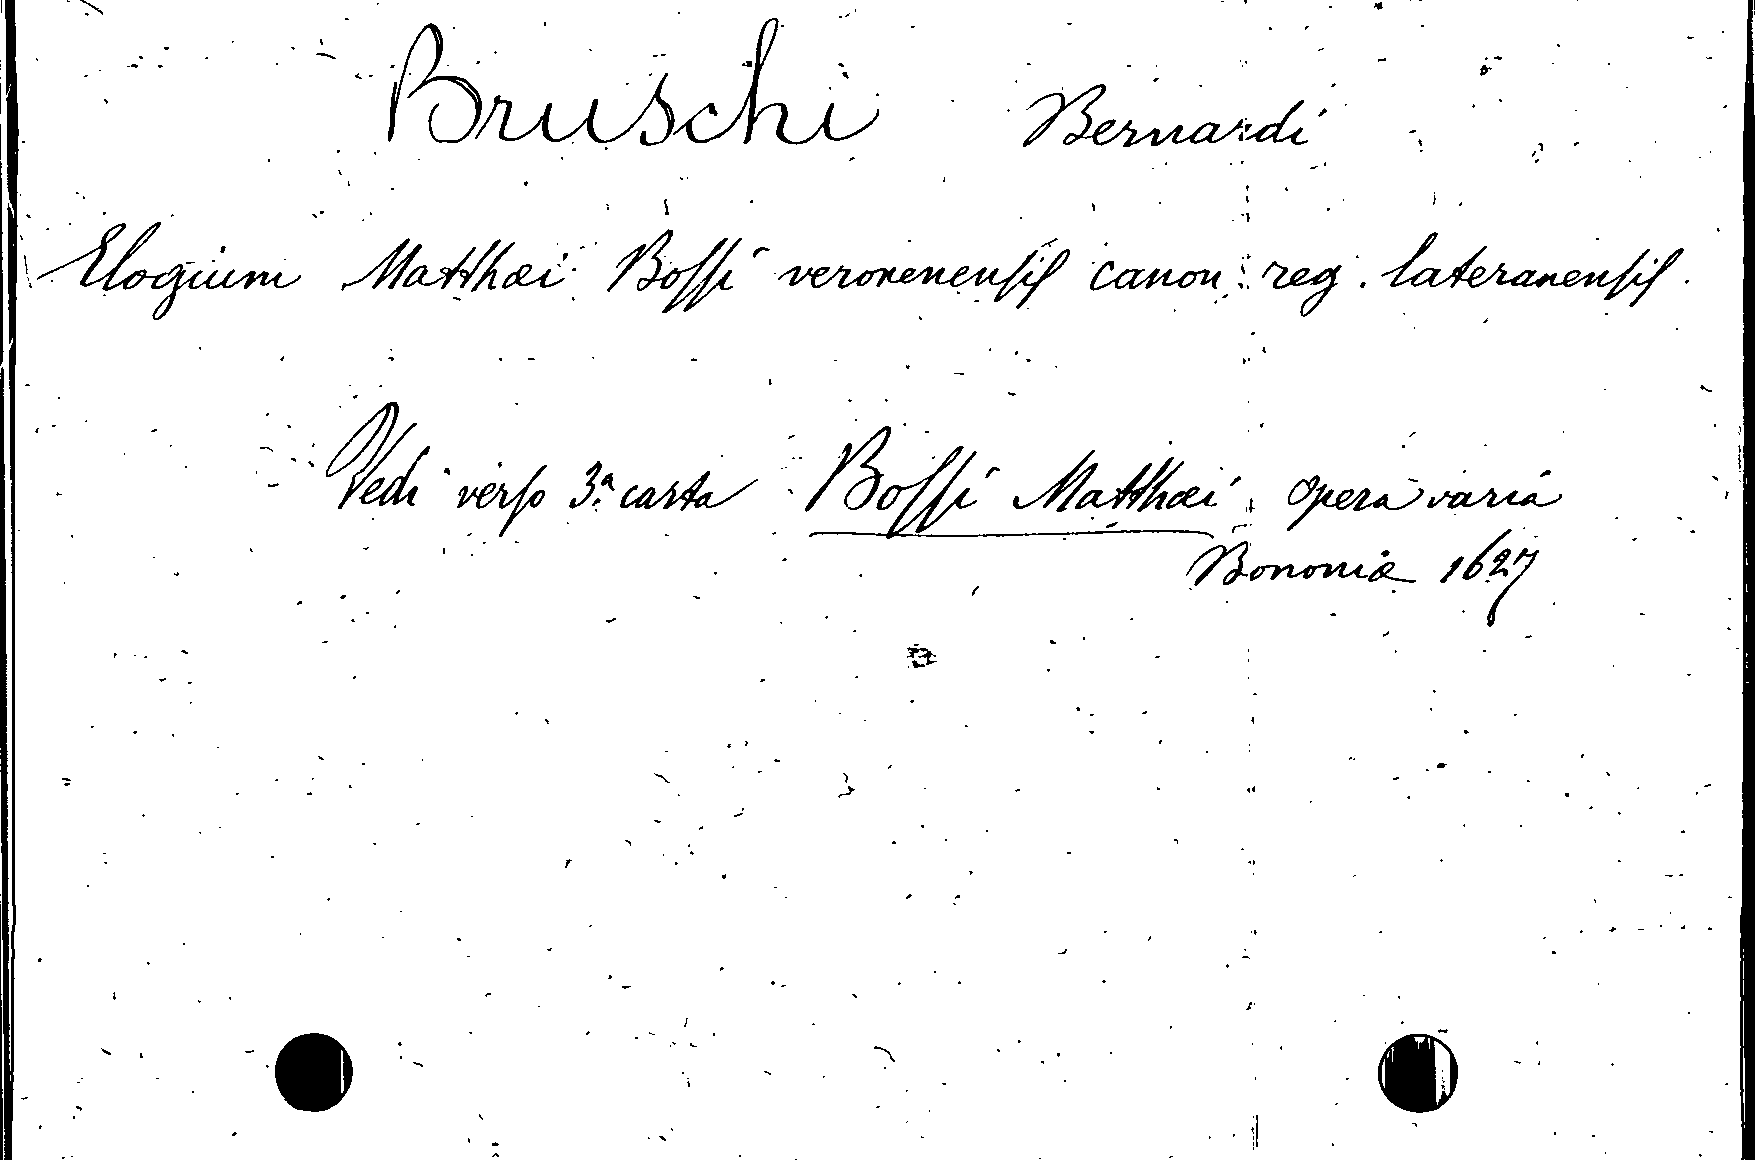 Bruschi Bernardi
Elogium Matthæi Boſſi veronenenſiſ canon. reg. lateranenſiſ.
Vedi verſo 3ª carta Boſſi Matthæi, opera varia
Bononiæ 1627